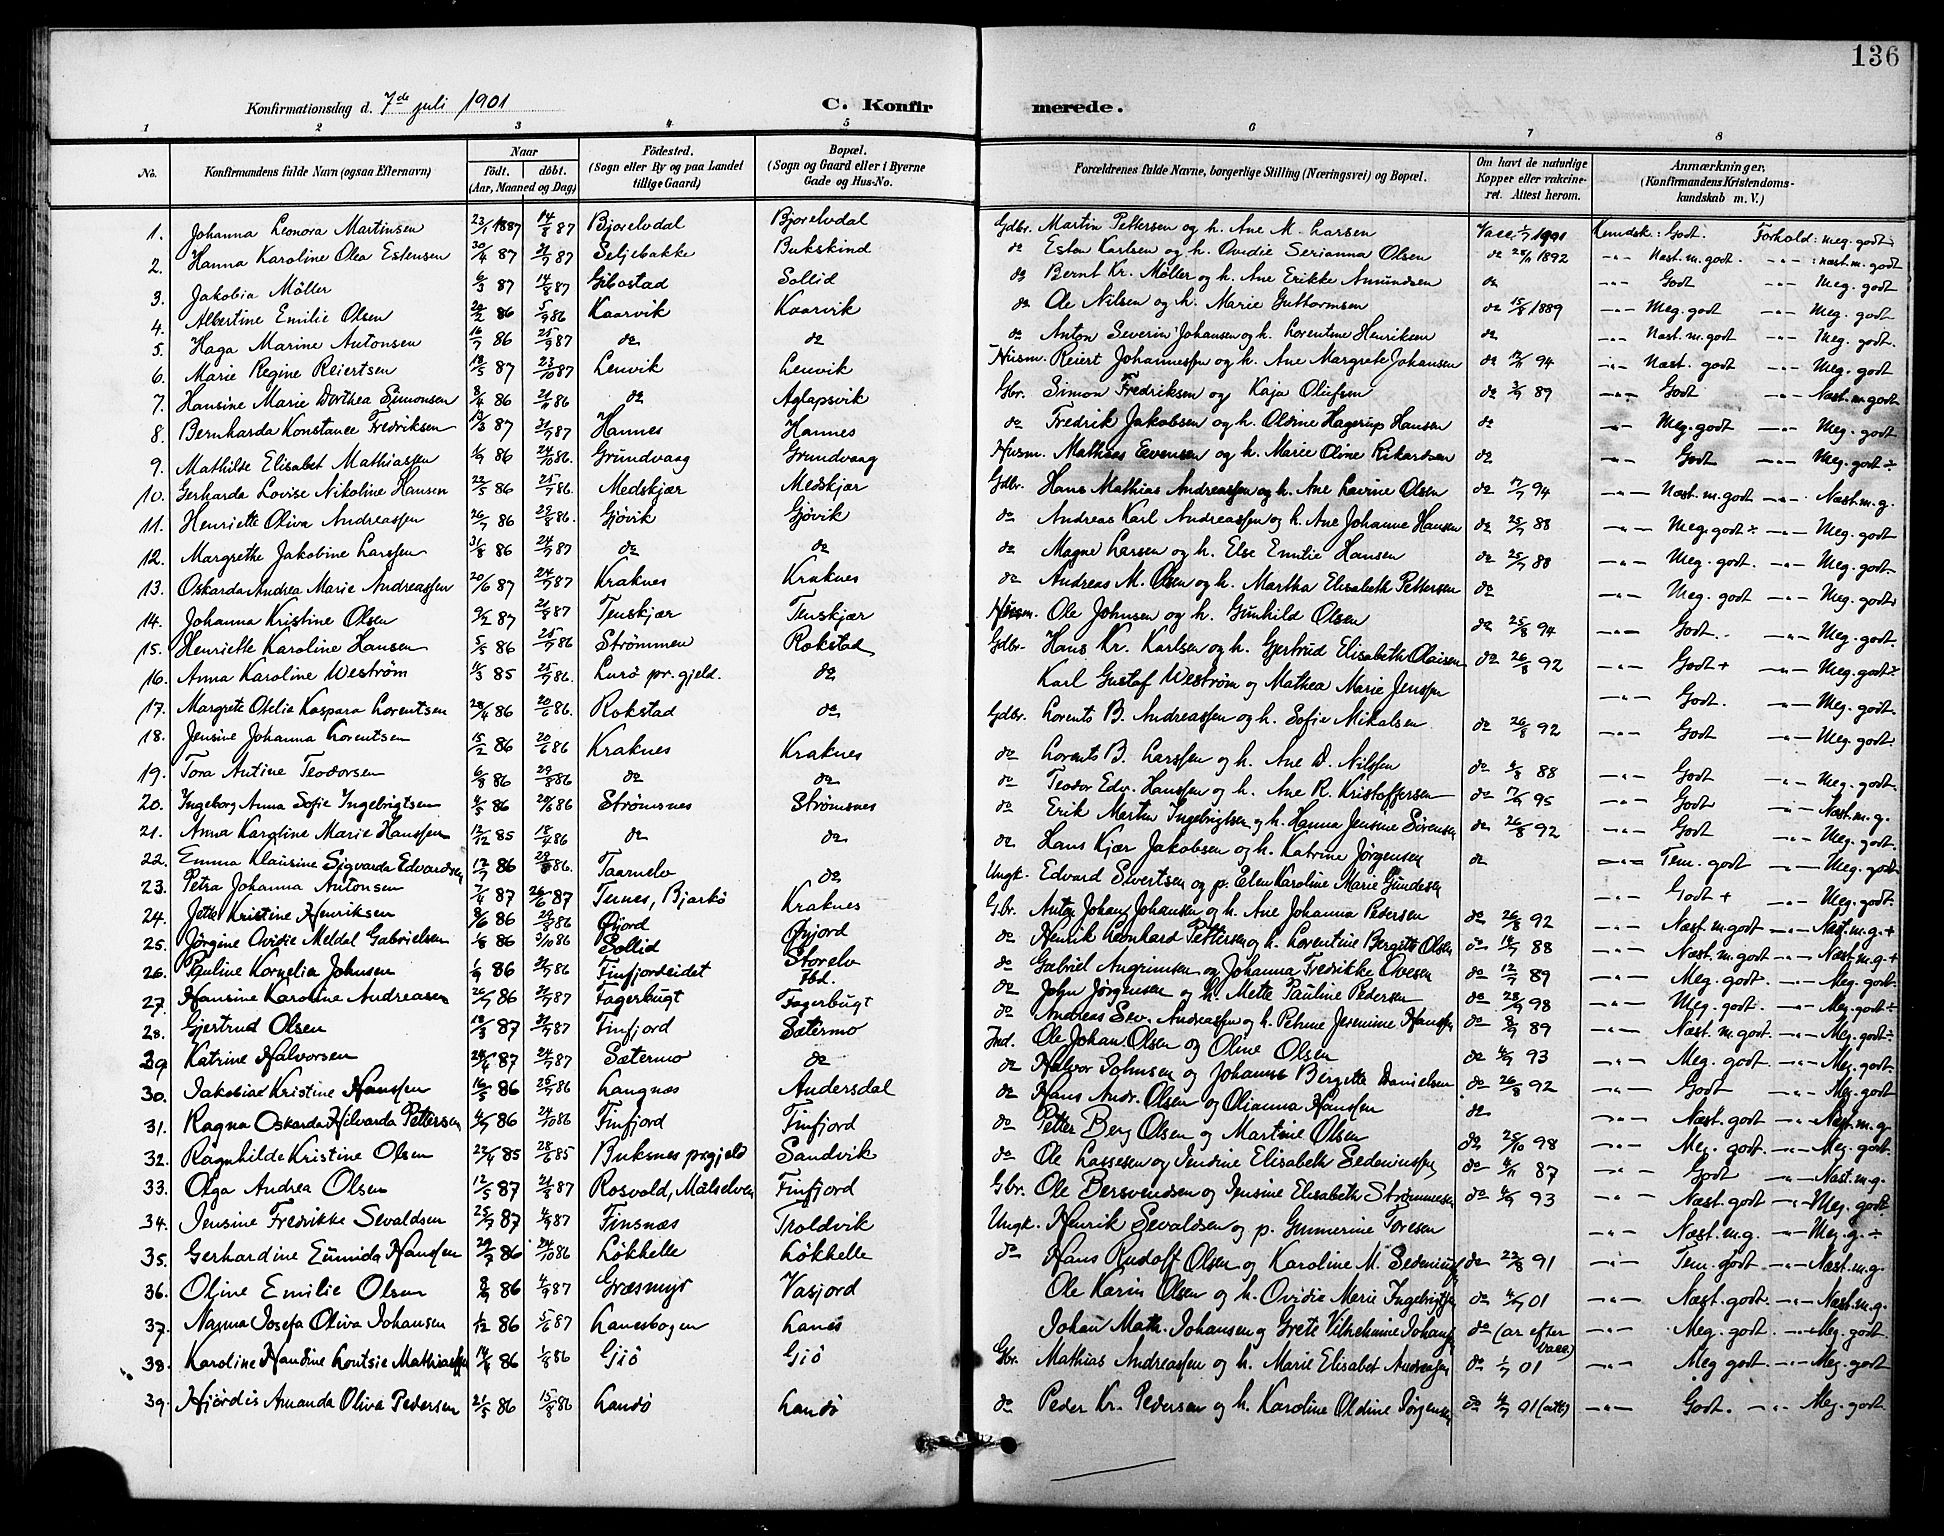 136
Konfirmationsdag d. 7de juli 1901
C. Konfir merede.
1 2 3 4 5 6 7 8
No. Konfirmandens fulde Navn (ogsaa Efternavn) Naar født. døbt. (Aar, Maaned og Dag) Fødested. (Sogn eller By og paa Landet tillige Gaard) Bopæl. (Sogn og Gaard eller i Byerne Gade og Hus-No. Forældrenes fulde Navne, borgerlige Stilling (Næringsvei) og Bopæl. Om havt de naturlige Kopper eller vakcineret. Attest herom. Anmærkninger, (Konfirmandens Kristendomskundskab m. V.)
1. Johanna Leonora Martinsen 23/1 1887 14/8 87 Bjorelvdal Bjorelvdal Gdbr. Martin Pettersen og h. Ane M. Larsen Kundsk.: Godt. Forhold: meg. godt
2. Hanna Karoline Olea Estensen 30/4 87 Seljebakke Bukskind do Esten Karlsen og h. Ovidie Serianna Olsen Næst. m. godt. næst. m. godt
3. Jakobia Möller 6/3 87 14/8 87 Gibostad Sollid do Bernt Kr. Möller og h. Ane Erikke Amundsen do Godt Meg. godt
4. Albertine Emilie Olsen 5/9 86 Kaarvik Kaarvik do Ole Nilsen og h. Marie Guttormsen do 15/8 1889 Meg. godt Meg. godt
5. Haga Marine Antonsen 16/7 86 25/9 87 do do do Anton Severin Johansen og h. Lorentine Henriksen do Næst. m. godt Meg. godt.
6. Marie Regine Reiertsen 18/5 87 23/10 87 Lenvik Lenvik Husm. Reiert Johannessen og h. Ane Margrete Johansen do 94 Næst. godt Meg. godt
7. Hansine Marie Dorthea Simonsen 8/4 86 do Aglapsvik Gbr. Simon Fredriksen og Kaja Olufsen do 89 Godt Næst. m. godt
8. Bernharda Konstance Fredriksen 87 87 Hannes Hannes do Fredrik Jakobsen og h. Oldine Hagerup Hansen do Meg. godt Meg. godt
9. Mathilde Elisabet Mathiassen 1/9 86 24/10 86. Grundvaag Grundvaag Husm. Mathias Evensen og h. Marie Oline Rikardsen do Godt Meg. godt ÷
10. Gerharda Lovise Nikoline Hansen 22/5 86 25/7 86. Medskjær Medskjær Gdbr. Hans Mathias Andreassen og h. Ane Lavine Olsen do 17/7 94 Næst. m. godt Næst. m. g.
11. Henriette Oliva Andreassen 26/7 86 29/8 86. Gjövik Gjövik do Andreas Karl Andreassen og h. Ane Johanne Hansen do 25/7 88 Meg. godt ÷ Meg. godt
12. Margrethe Jakobine Larssen 31/8 86 24/7 87 do do do Magne Larsen og h. Else Emilie Hansen do 25/7 88 Meg. godt. Meg. godt.
13. Oskarda Andrea Marie Andreassen 20/6 87 24/7 87 Kraknes Kraknes do Andreas M. Olsen og h. Martha Elisabeth Pettersen do Meg. godt Meg. godt
14. Johanna Kristine Olsen 9/2 87 21/8 87 Tenskjær Tenskjær Husm. Ole Johnsen og h. Gunhild Olsen do 25/8 94 Godt. Meg. godt
15. Henriette Karoline Hansen 5/5 86 25/7 86 Strömmen Rokstad Gdbr. Hans Kr. Karlsen og h. Gjertrud Elisabeth Olaisen do 26/8 92 Godt + Meg. godt ÷
16. Anna Karoline Weström 85 25/7 86. Lurö pr. gjeld. do Karl Gustaf Weström og Mathea Marie Jenssen Godt. Meg. godt.
17. Margrete Otelia Kaspara Lorentsen 28/4 86 20/6 86. Rokstad do Gdbr. Lorents B. Andreassen og h. Sofie Mikalsen do 26/8 92 Godt Meg. godt
18. Jensine Johanna Lorentsen 15/2 86 20/6 86 Kraknes Kraknes do Lorents B. Larssen og h. Ane D. Nilssen do 88 Godt Meg. godt
19. Tora Antine Teodorsen 6/8 86 29/8 86 do do do Teodor Edv. Hanssen og h. Ane R. Kristoffersen do 95 Godt Næst. m. g.
20. Ingeborg Anna Sofie Ingebrigtsen 4/5 86 20/6 86 Strömsnes Strömsnes do Erik Martin Ingebrigtsen og h. Hanna Jensine Sörensen do 26/8 92 Godt Meg. godt.
21. Anna Karoline Marie Hanssen 12/12 85 18/4 86 do do do Hans Kjær Jakobsen og h. Katrine Jörgensen do Tem. godt Meg. godt
22. Emma Klausine Sigvarda Edvardsen 12/7 86 86. Taarnelv do Ungk. Edvard Sivertsen og p. Elen Karoline Marie Gundesen Godt + Meg. godt.
23. Petra Johanna Antonsen 7/4 87 26/6 87 Ternes, Bjarkö Kraknes Gbr. Anton Johan Johansen og h. Ane Johanna Pedersen do 26/8 92 Næst. m. godt Næst. m. g. +
24. Jette Kristine Henriksen 8/6 86 29/8 86 Öijord Öyjord do Henrik Leonhard Pettersen og h. Lorentine Bergitte Olsen do 88 Næst. m. godt Næst. m. g +
25. Jörgine Ovidie Meldal Gabrielsen 1/8 86 3/10 86 Sollid Storelv do Gabriel Angrimsen og Johanna Fredrikke Ovesen do 12/7 89 Meg. godt. Meg. godt
26. Pauline Kornelia Johnsen 1/9 86 86 Finfjordeidet Ibd. do John Jörgensen og h. Mette Pauline Pedersen do 98 Meg. godt. Meg. godt ÷
27. Hansine Karoline Andreasen 26/7 86 87 Fagerbugt Fagerbugt do Andreas Sev. Andreassen og h. Petrine Jeremine Hanssen do 89 Næst. m. godt. Meg. godt ÷
28. Gjertrud Olsen 18/3 87 87 Finfjord Sætermo Ind. Ole Johan Olsen og Oline Olsen do 93 Meg. godt. Meg. godt.
29. Katrine Halvorsen 87 24/7 87 Sætermo do do Halvor Johnsen og Johanne Bergette Danielsen do 26/8 92 Godt Meg. godt
30. Jakobine Kristine Hanssen 16/5 86 25/7 86 Langnæs Andersdal do Hans Andr. Olsen og Olianna Hanssen do Næst. godt Næst. m. g.
31. Ragna Oskarda Hilvarda Pettersen 86 24/10 86 Finfjord Finfjord do Petter Berg Olsen og Martine Olsen do 25/10 98 Meg. godt. Meg. godt.
32. Ragnhilde Kristine Olsen 22/4 85 28/6 85 Buksnes prgjeld Sandvik do Ole Lassesen og Jendine Elisabeth Sedeniussen do 87 Godt Næst. m. g.
33. Olga Andrea Olsen 12/5 87 21/8 87 Rosvold, Målselven Finfjord Gbr. Ole Bersvendsen og Jensine Elisabeth Strömmesen do 93 Næst. godt Meg. godt
34. Jensine Fredrikke Sevaldsen 25/7 87 4/9 87 Finsnæs Troldvik Ungk. Henrik Sevaldsen og p. Gunnerine Toresen Næst. m. g. Meg. g. ÷
35. Gerhardine Eunida Hanssen 29/7 86 24/10 86 Lökhelle Lökhelle do Hans Rudolf Olsen og Karoline M. Sedenius do 22/8 91 Tem. godt Næst. m. g.
36. Oline Emilie Olsen 8/9 86 4/9 87 Græsmyr Vasjord Ole Karin Olsen og h. Ovidie Merie Ingebrigtsen do 01 Næst. godt. Næst. m. g.
37. Nanna Josefa Oliva Johansen 1/12 86 5/6 87 Lanesbogen Lanes Johan Math. Johansen og Grete Vilhelmine Johans do (ar efter Vacc) Meg. godt. Meg. godt
38. Karoline Handine Lontsie Mathiassen 86 1/8 86 Gjö Gjö Gbr. Mathias Andreassen og h. Marie Elisabet Andreasen do 1/7 01 Meg godt. Meg. godt
39. Hjördis Amanda Oliva Pedersen 21/5 86 15/8 86 Landö Landö do Peder Kr. Pedersen og h. Karoline Oldine Jörgensen do 01 (att) Godt. Meg. godt